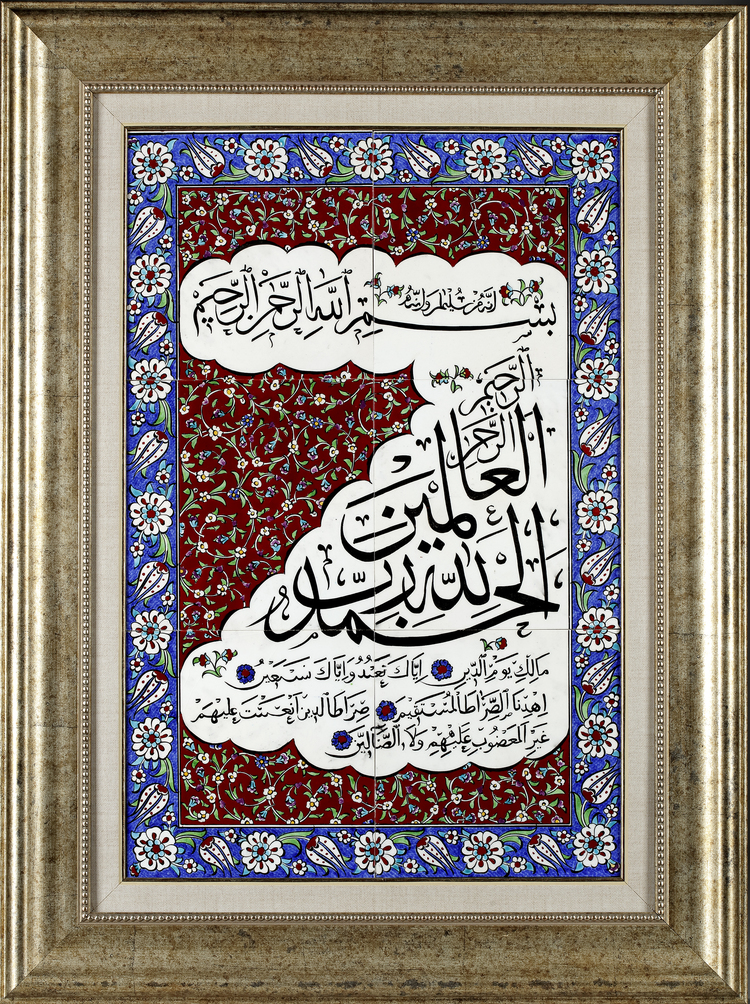 انه من سليمن وانه
بسم الله الرحمن الرحيم
الحمد لله رب
العالمين
الرحمن
الرحيم
مالك يوم الدين اياك نعبد واياك نستعين
اهدنا الصراط المستقيم صراط الذين انعمت عليهم
غير المغضوب عليهم ولا الضالين